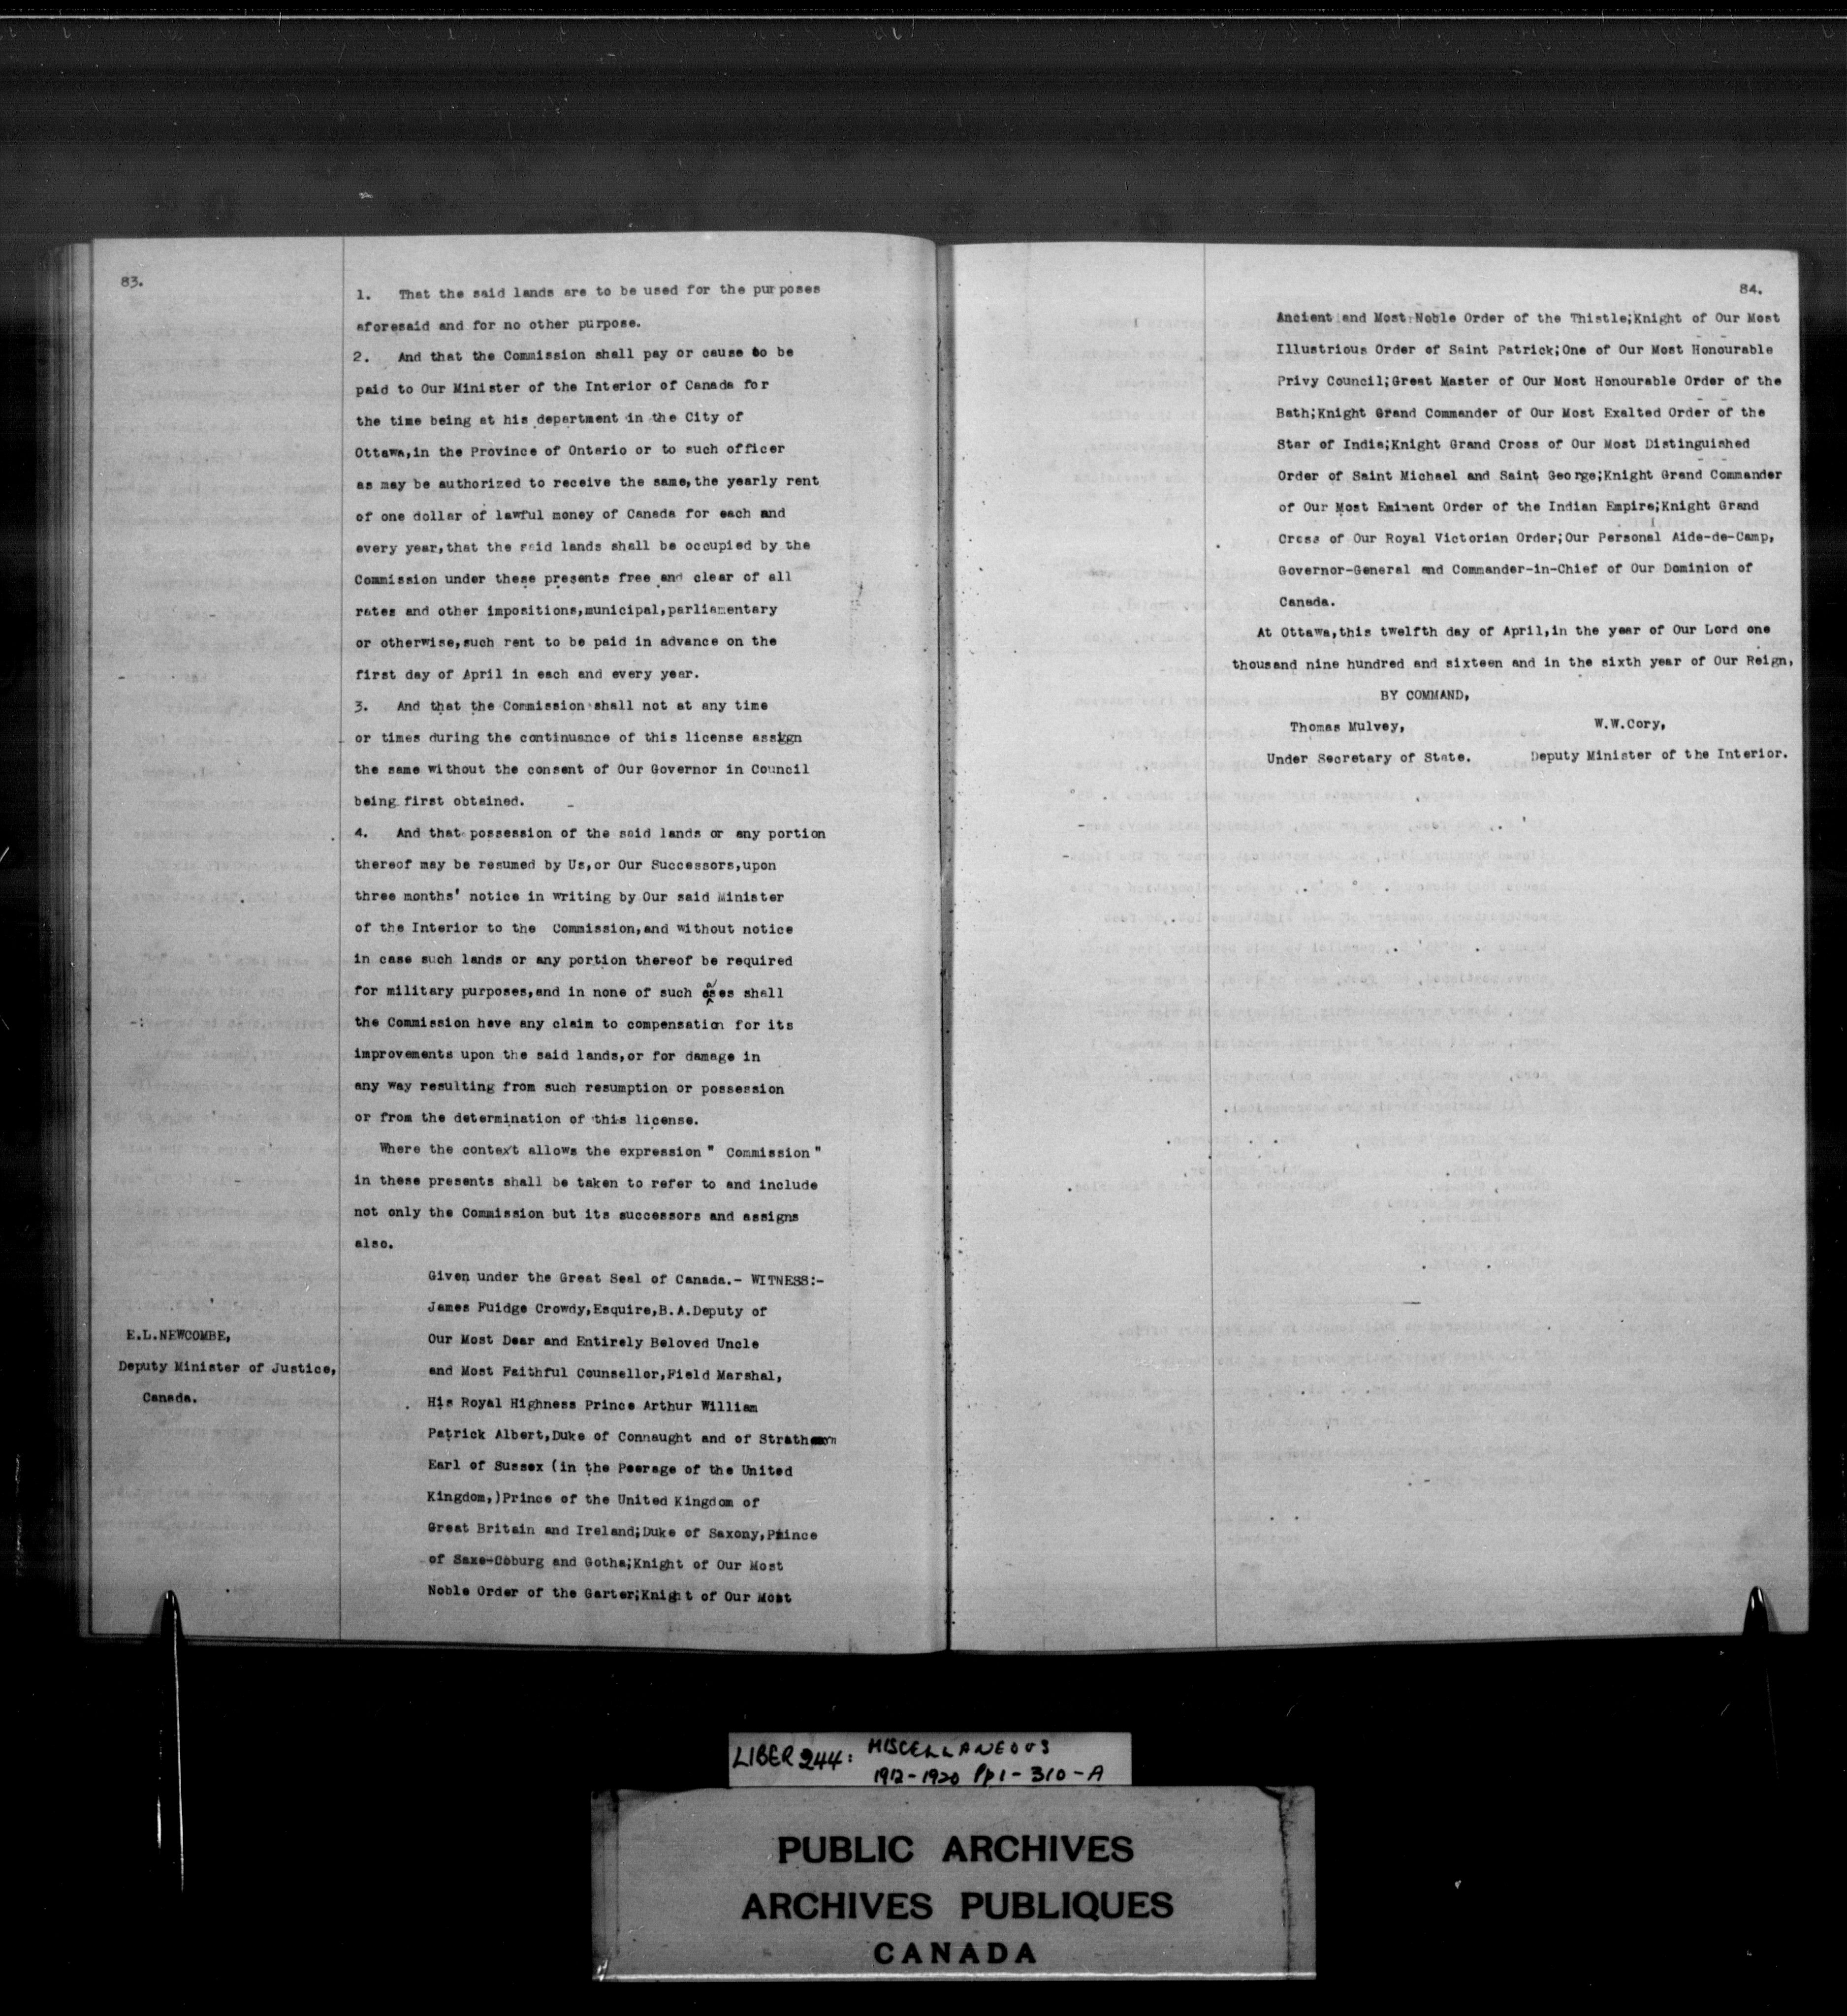 83.
1. That the said lands are to be used for the purposes
aforesaid and for no other purpose.
2. And that the Commission shall pay or cause to be
paid to Our Minister of the Interior of Canada for
the time being at his department in the City of
Ottawa,in the Province of Ontario or to such officer
as may be authorized to receive the same,the yearly rent
of one dollar of lawful money of Canada for each and
every year,that the said lands shall be occupied by the
Commission under these presents free and clear of all
rates and other impositions,municipal,parliamentary
or otherwise,such rent to be paid in advance on the
first day of April in each and every year.
3. And that the Commission shall not at any time
or times during the continuance of this license assign
the same without the consent of Our Governor in Council
being first obtained.
4. And that possession of the said lands or any portion
thereof may be resumed by Us,or Our Successors,upon
three months' notice in writing by Our said Minister
of the Interior to the Commission,and without notice
in case such lands or any portion thereof be required
for military purposes,and in none of such cases shall
the Commission have any claim to compensation for its
improvements upon the said lands,or for damage in
any way resulting from such resumption or possession
or from the determination of this license.
Where the context allows the expression " Commission "
in these presents shall be taken to refer to and include
not only the Commission but its successors and assigns
also.
Given under the Great Seal of Canada.- WITNESS:-
James Fuidge Crowdy,Esquire,B.A.Deputy of
Our Most Dear and Entirely Beloved Uncle
and Most Faithful Counsellor,Field Marshal,
His Royal Highness Prince Arthur William
Patrick Albert,Duke of Connaught and of Strathearn
Earl of Sussex (in the Peerage of the United
Kingdom,)Prince of the United Kingdom of
Great Britain and Ireland;Duke of Saxony,Prince
of Saxe-Coburg and Gotha;Knight of Our Most
Noble Order of the Garter;Knight of Our Most
E.L.NEWCOMBE,
Deputy Minister of Justice,
Canada.
84.
Ancient and Most Noble Order of the Thistle;Knight of Our Most
Illustrious Order of Saint Patrick;One of Our Most Honourable
Privy Council;Great Master of Our Most Honourable Order of the
Bath;Knight Grand Commander of Our Most Exalted Order of the
Star of India;Knight Grand Cross of Our Most Distinguished
Order of Saint Michael and Saint George;Knight Grand Commander
of Our Most Eminent Order of the Indian Empire;Knight Grand
Cross of Our Royal Victorian Order;Our Personal Aide-de-Camp,
Governor-General and Commander-in-Chief of Our Dominion of
Canada.
At Ottawa,this twelfth day of April,in the year of Our Lord one
thousand nine hundred and sixteen and in the sixth year of Our Reign,
BY COMMAND,
Thomas Mulvey, W.W.Cory,
Under Secretary of State. Deputy Minister of the Interior.
LIBER 244: MISCELLANEOUS
1912-1920 Pp1-310-A
PUBLIC ARCHIVES
ARCHIVES PUBLIQUES
CANADA